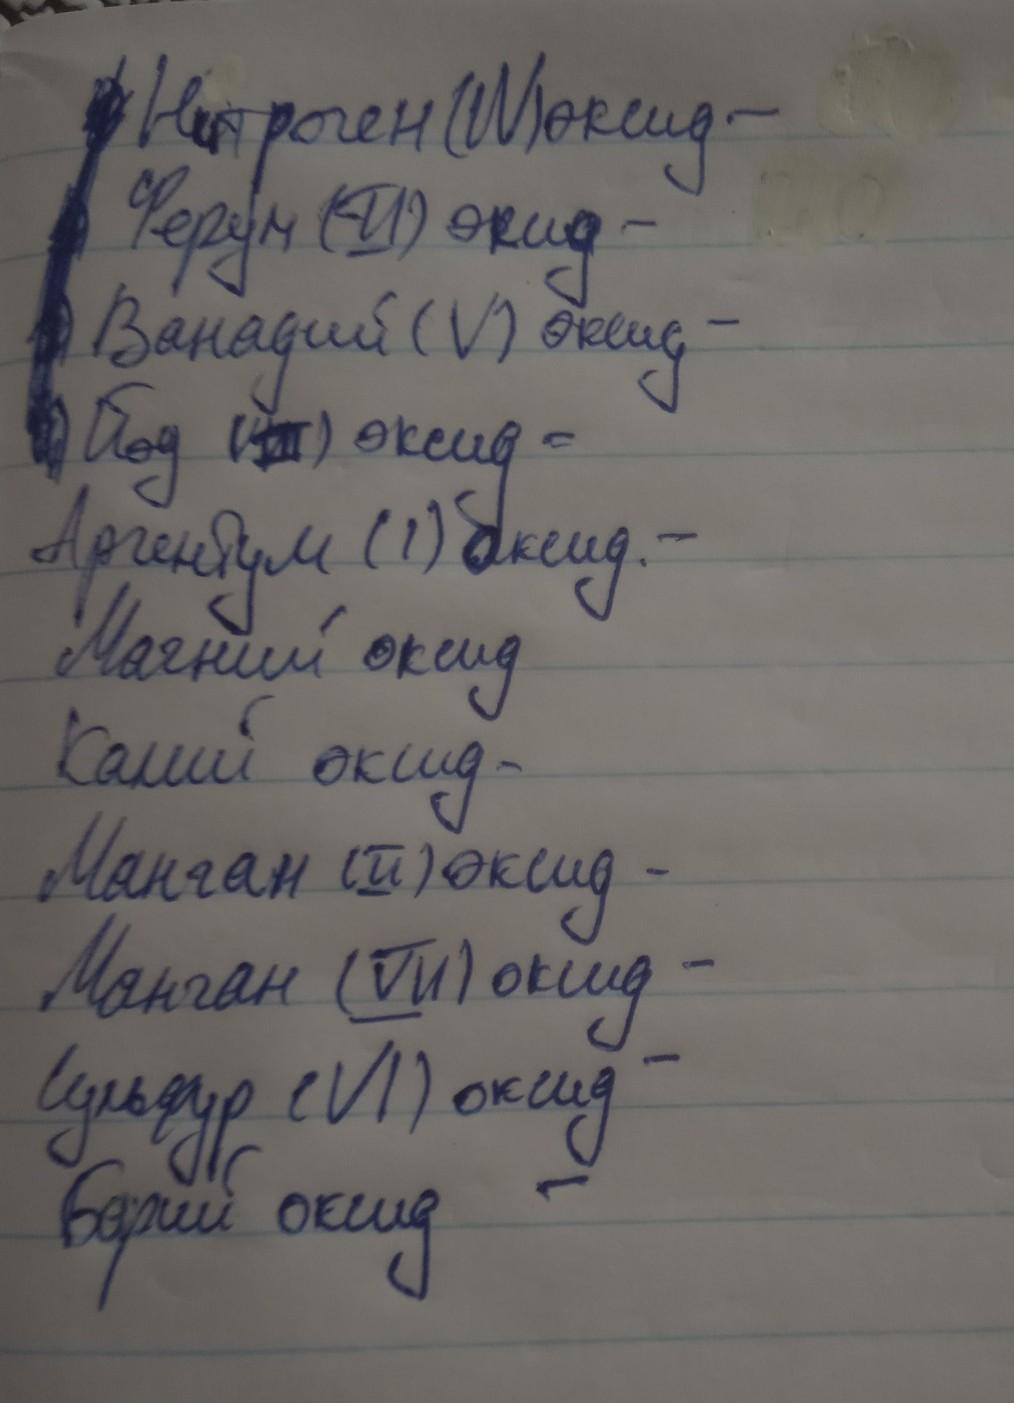 Нитроген (IV) оксид -
Ферум (VI) оксид -
Ванадий (V) оксид -
Йод (VII) оксид =
Аргентум (I) оксид. -
Магний оксид
Калий оксид -
Манган (II) оксид -
Манган (VII) оксид -
Сульфур (VI) оксид -
Барий оксид -